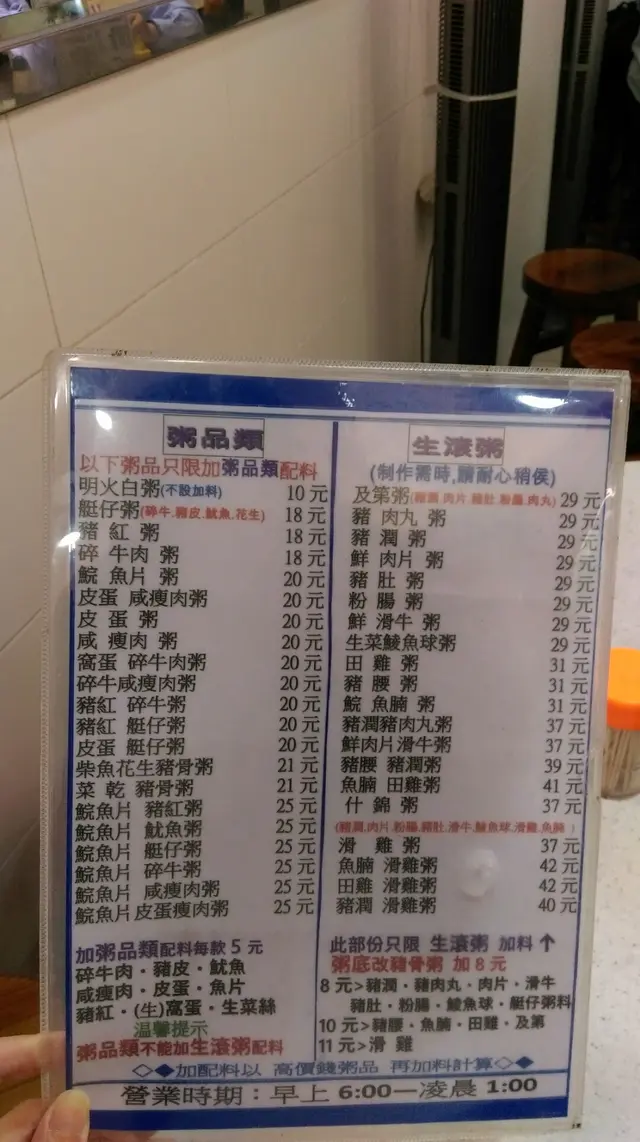 粥品類
以下粥品只限加粥品類配料
明火白粥(不設加料) 10 元
艇仔粥(碎牛.豬皮.魷魚.花生) 18 元
豬 紅 粥 18 元
碎 牛肉 粥 18 元
鯇 魚片 粥 20 元
皮蛋 咸瘦肉粥 20 元
皮 蛋 粥 20 元
咸 瘦肉 粥 20 元
窩蛋 碎牛肉粥 20 元
碎牛咸瘦肉粥 20 元
豬紅 碎牛粥 20 元
豬紅 艇仔粥 20 元
皮蛋 艇仔粥 20 元
柴魚花生豬骨粥 21 元
菜 乾 豬骨粥 21 元
鯇魚片 豬紅粥 25 元
鯇魚片 魷魚粥 25 元
鯇魚片 艇仔粥 25 元
鯇魚片 碎牛粥 25 元
鯇魚片 咸瘦肉粥 25 元
鯇魚片皮蛋瘦肉粥 25 元
加粥品類配料每款 5 元
碎牛肉・豬皮・魷魚
咸瘦肉・皮蛋・魚片
豬紅・(生)窩蛋・生菜絲
温馨提示
粥品類不能加生滾粥配料
生滾粥
(制作需時,請耐心稍侯)
及第粥(豬潤.肉片.豬肚.粉腸.肉丸) 29 元
豬 肉丸 粥 29 元
豬 潤 粥 29 元
鮮 肉片 粥 29 元
豬 肚 粥 29 元
粉 腸 粥 29 元
鮮 滑牛 粥 29 元
生菜鯪魚球粥 29 元
田 雞 粥 31 元
豬 腰 粥 31 元
鯇 魚腩 粥 31 元
豬潤豬肉丸粥 37 元
鮮肉片滑牛粥 37 元
豬腰 豬潤粥 39 元
魚腩 田雞粥 41 元
什 錦 粥 37 元
(豬潤.肉片.粉腸.豬肚.滑牛.鯪魚球.滑雞.魚腩)
滑 雞 粥 37 元
魚腩 滑雞粥 42 元
田雞 滑雞粥 42 元
豬潤 滑雞粥 40 元
此部份只限 生滾粥 加料↑
粥底改豬骨粥 加 8 元
8 元>豬潤・豬肉丸・肉片・滑牛
豬肚・粉腸・鯪魚球・艇仔粥料
10 元>豬腰・魚腩・田雞・及第
11 元>滑 雞
◇◆加配料以 高價錢粥品 再加料計算◇◆
營業時期：早上 6:00—凌晨 1:00